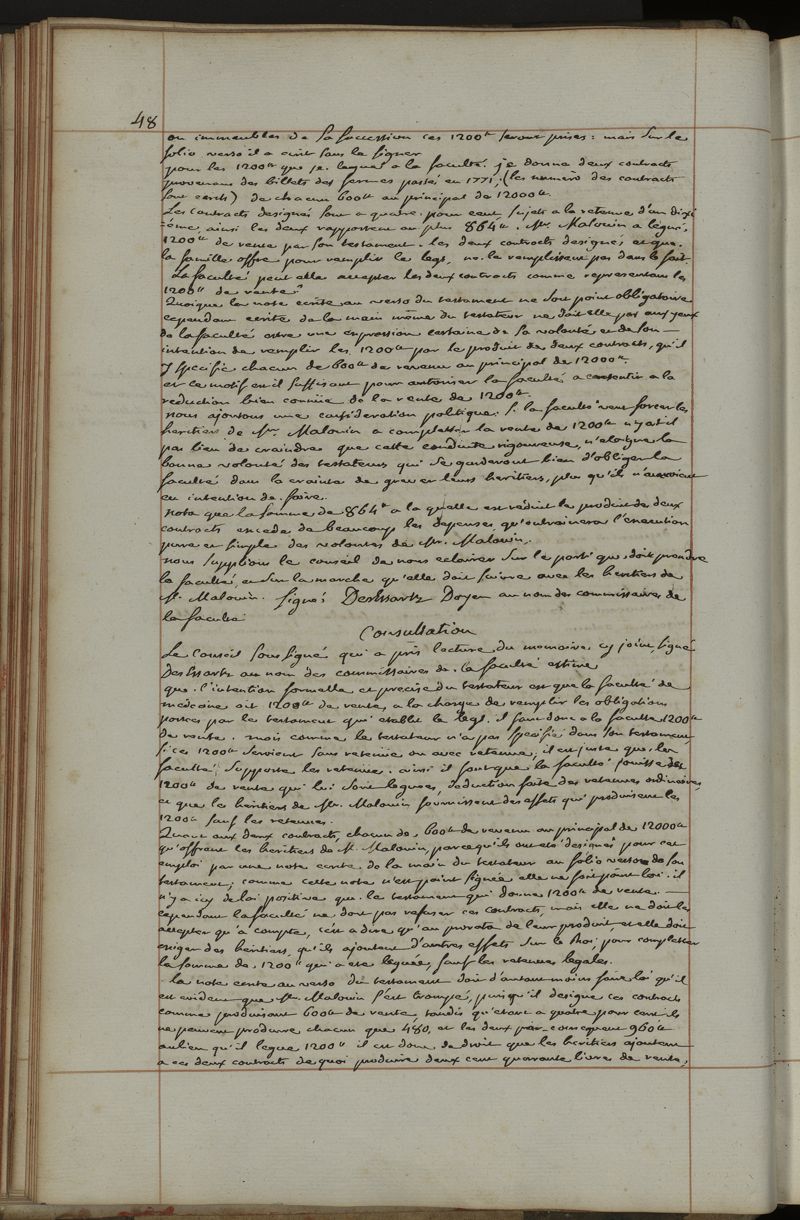 48
ou immeubles de sa succession ces 1200tt seront prises: mais sur le
folio verso il a ecrit sans la signer
pour les 1200tt que je legue a la faculté. je donne deux contracts
provenans des billets des fermes passé en 1771, (les numero des contracts
sont ecrits) de chacun 600tt au principal de 12000tt.
Les contracts designés sont a quatre pour cent, sujets a la retenue d'un dixi
=éme, ainsi les deux rapportent au plus 864tt. Mr. Malouin a legué,
1200tt de rente par son testament. les deux contracts designés et que
la famille offre pour remplir le legs, ne le remplissent pas dans le fait.
La faculté peut elle accepter les deux contracts comme representans les
1200tt de rente?
Quoique la note ecrite au verso du testament ne soit point obligatoire
cependant ecrite de la main même du testateur ne doit elle pas aux yeux
de la faculté etre une expression certaine de sa volonté et de son —
intention de remplir les 1200tt par le produit de deux contracts, qu'il
y specifie chacun de 600tt de revenu au principal de 12000tt.
et ce motif est il suffisant pour autoriser la faculté a consentir a la
reduction bien connüe de la rente de 1200tt.
nous ajoutons une consideration politique. Si la faculté veut forcer les
heritiers de Mr. Malouin a completter la rente de 1200tt n'y at'il
pas lieu de craindre que cette conduite rigoureuse, n'eloigne la
bonne volonté des testateurs qui se garderont bien d'obliger la
faculté dans la crainte de grever leurs heritiers, plus qu'ils n'auroient
eu intention de faire.
nota que la somme de 864tt a la quelle est réduit le produit de deux
contracts excede de beaucoup les depenses qu'entrainera l'execution
pure et simple des volontés de Mr. Malouin.
nous supplions le conseil de nous eclairer sur le parti que doit prendre
la faculté, et sur la marche qu'elle doit suivre avec les heritiers de
Mr. Malouin. Signé: DesEssartz Doyen au nom des commissaires de
la faculté
Consultation
Le Conseil sous signé qui a pris lecture du memoire cy joint, signé
DesEssartz au nom des commissaires de la faculté estime
que l'intention formelle et precise du testateur est que la faculté de
medecine ait 1200tt de rente, a la charge de remplir les obligations
portées par le testament qui etablit le legs. il faut donc a la faculté 1200tt
de rente. mais comme le testateur n'a pas specifié dans son testament
si ces 1200tt seroient sans retenüe ou avec retenüe, il est juste que la
faculté supporte les retenües. ainsi il faut que la faculté jouisse des
1200tt de rente qui lui sont leguées, deduction faite des retenues ordinaires,
et que les heritiers de Mr. Malouin fournissent des effets qui produisent les
1200tt sauf les retenues.
Quant aux deux contracts, chacun de 600tt de revenu au principal de 12000tt
qu'offrent les heritiers de Mr. Malouin, parcequ'ils ont eté designés pour cet
emploi par une note ecrite de la main du testateur au folio verso de son
testament; comme cette note n'est point signée elle ne fait point loi. il
n'y a icy de loi positive que le testament qui donne 1200tt de rente. —
cependant la faculté ne doit pas refuser ces contracts, mais elle ne doit les
accepter qu'a compte, c'est a dire qu'au prorata de leur produit, et elle doit
exiger des heritiers, qu'ils ajoutent d'autres effets sur le Roi, pour completter
la somme de 1200tt qui a eté leguée, sauf les retenues legales.
La note ecrite au verso du testament doit d'autant moins faire loi qu'il
est evident que Mr. Malouin s'est trompé, puisqu'il designe ces contracts
comme produisant 600tt de rente, tandis qu'etant a quatre pour cent ils
ne peuvent produire chacun que 480, et les deux par consequent 960tt
aulieu qu'il legue 1200tt il est donc de droit que les heritiers ajoutent
a ces deux contracts de quoi produire deux cent quarante livres de rente,